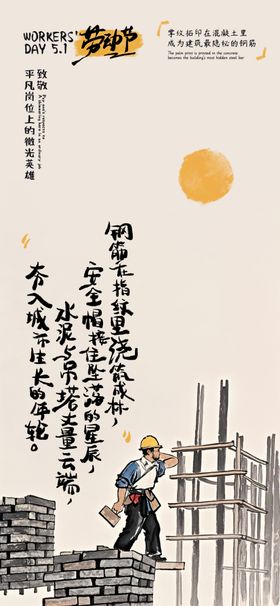 WORKERS'
DAY 5.1
劳动节
掌纹拓印在混凝土里
成为建筑最隐秘的钢筋
The palm print is printed in the concrete
becomes the building's most hidden steel bar
致敬
平凡岗位上的微光英雄
钢筋在指纹里绕箍成林，
安全帽接住坠落的星辰，
水泥与吊塔丈量云端，
夯入城市生长的年轮。